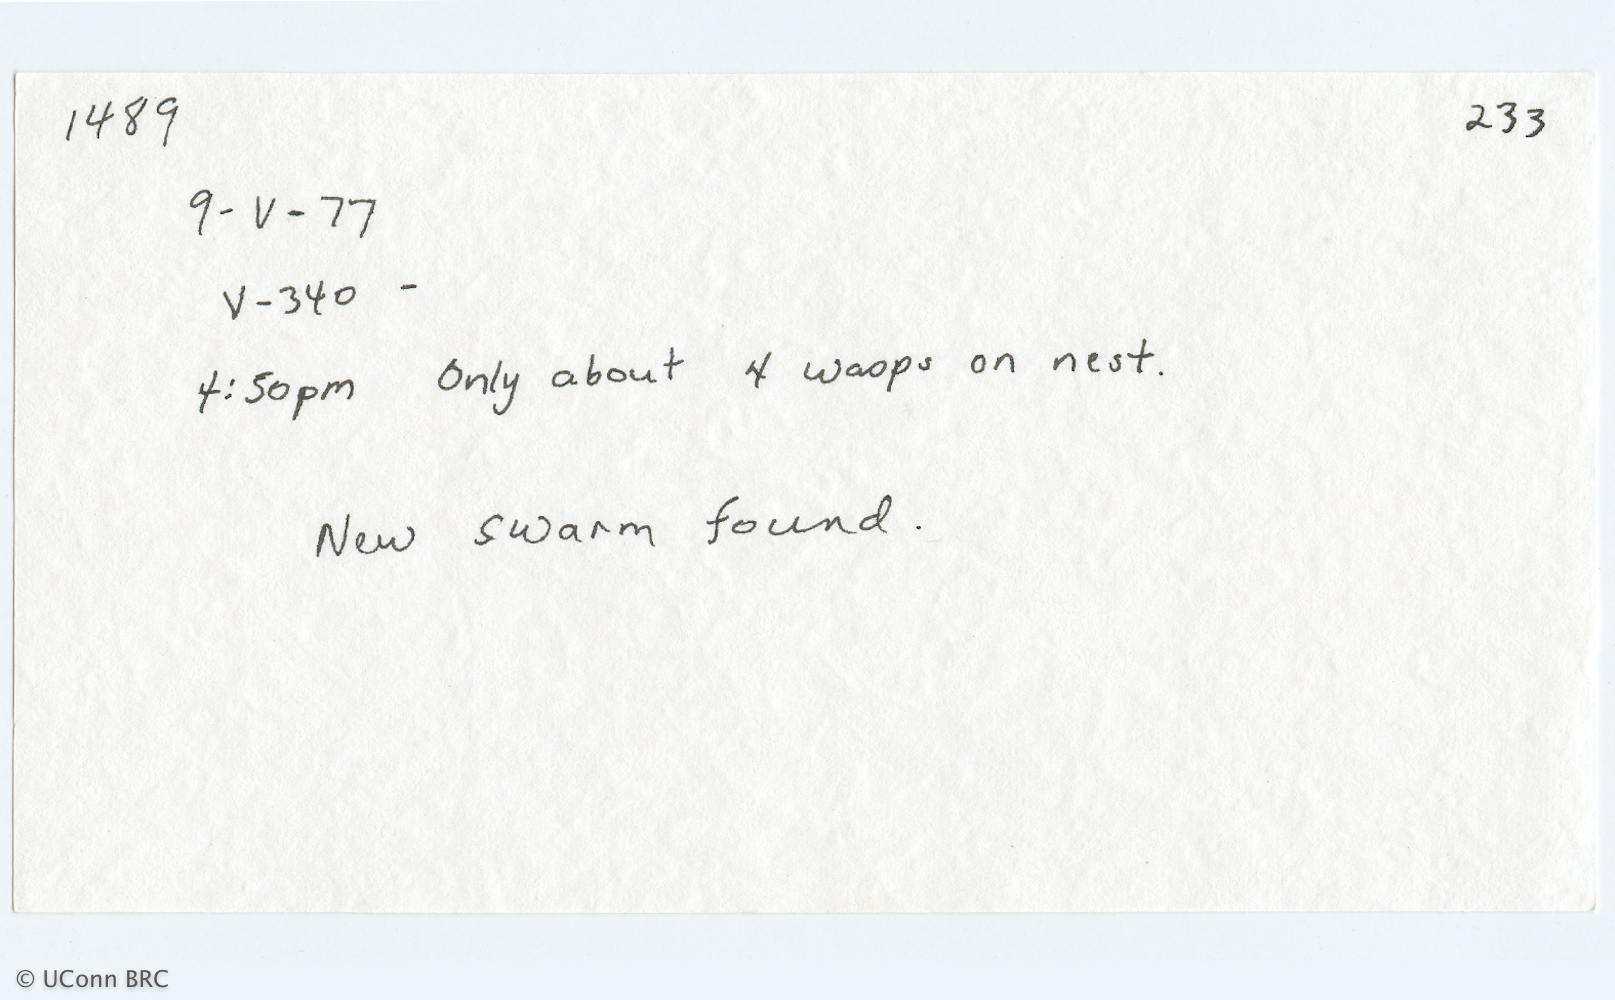 1489 233
9-V-77
V-340 -
4:50pm Only about 4 wasps on nest.
New swarm found.
© UConn BRC